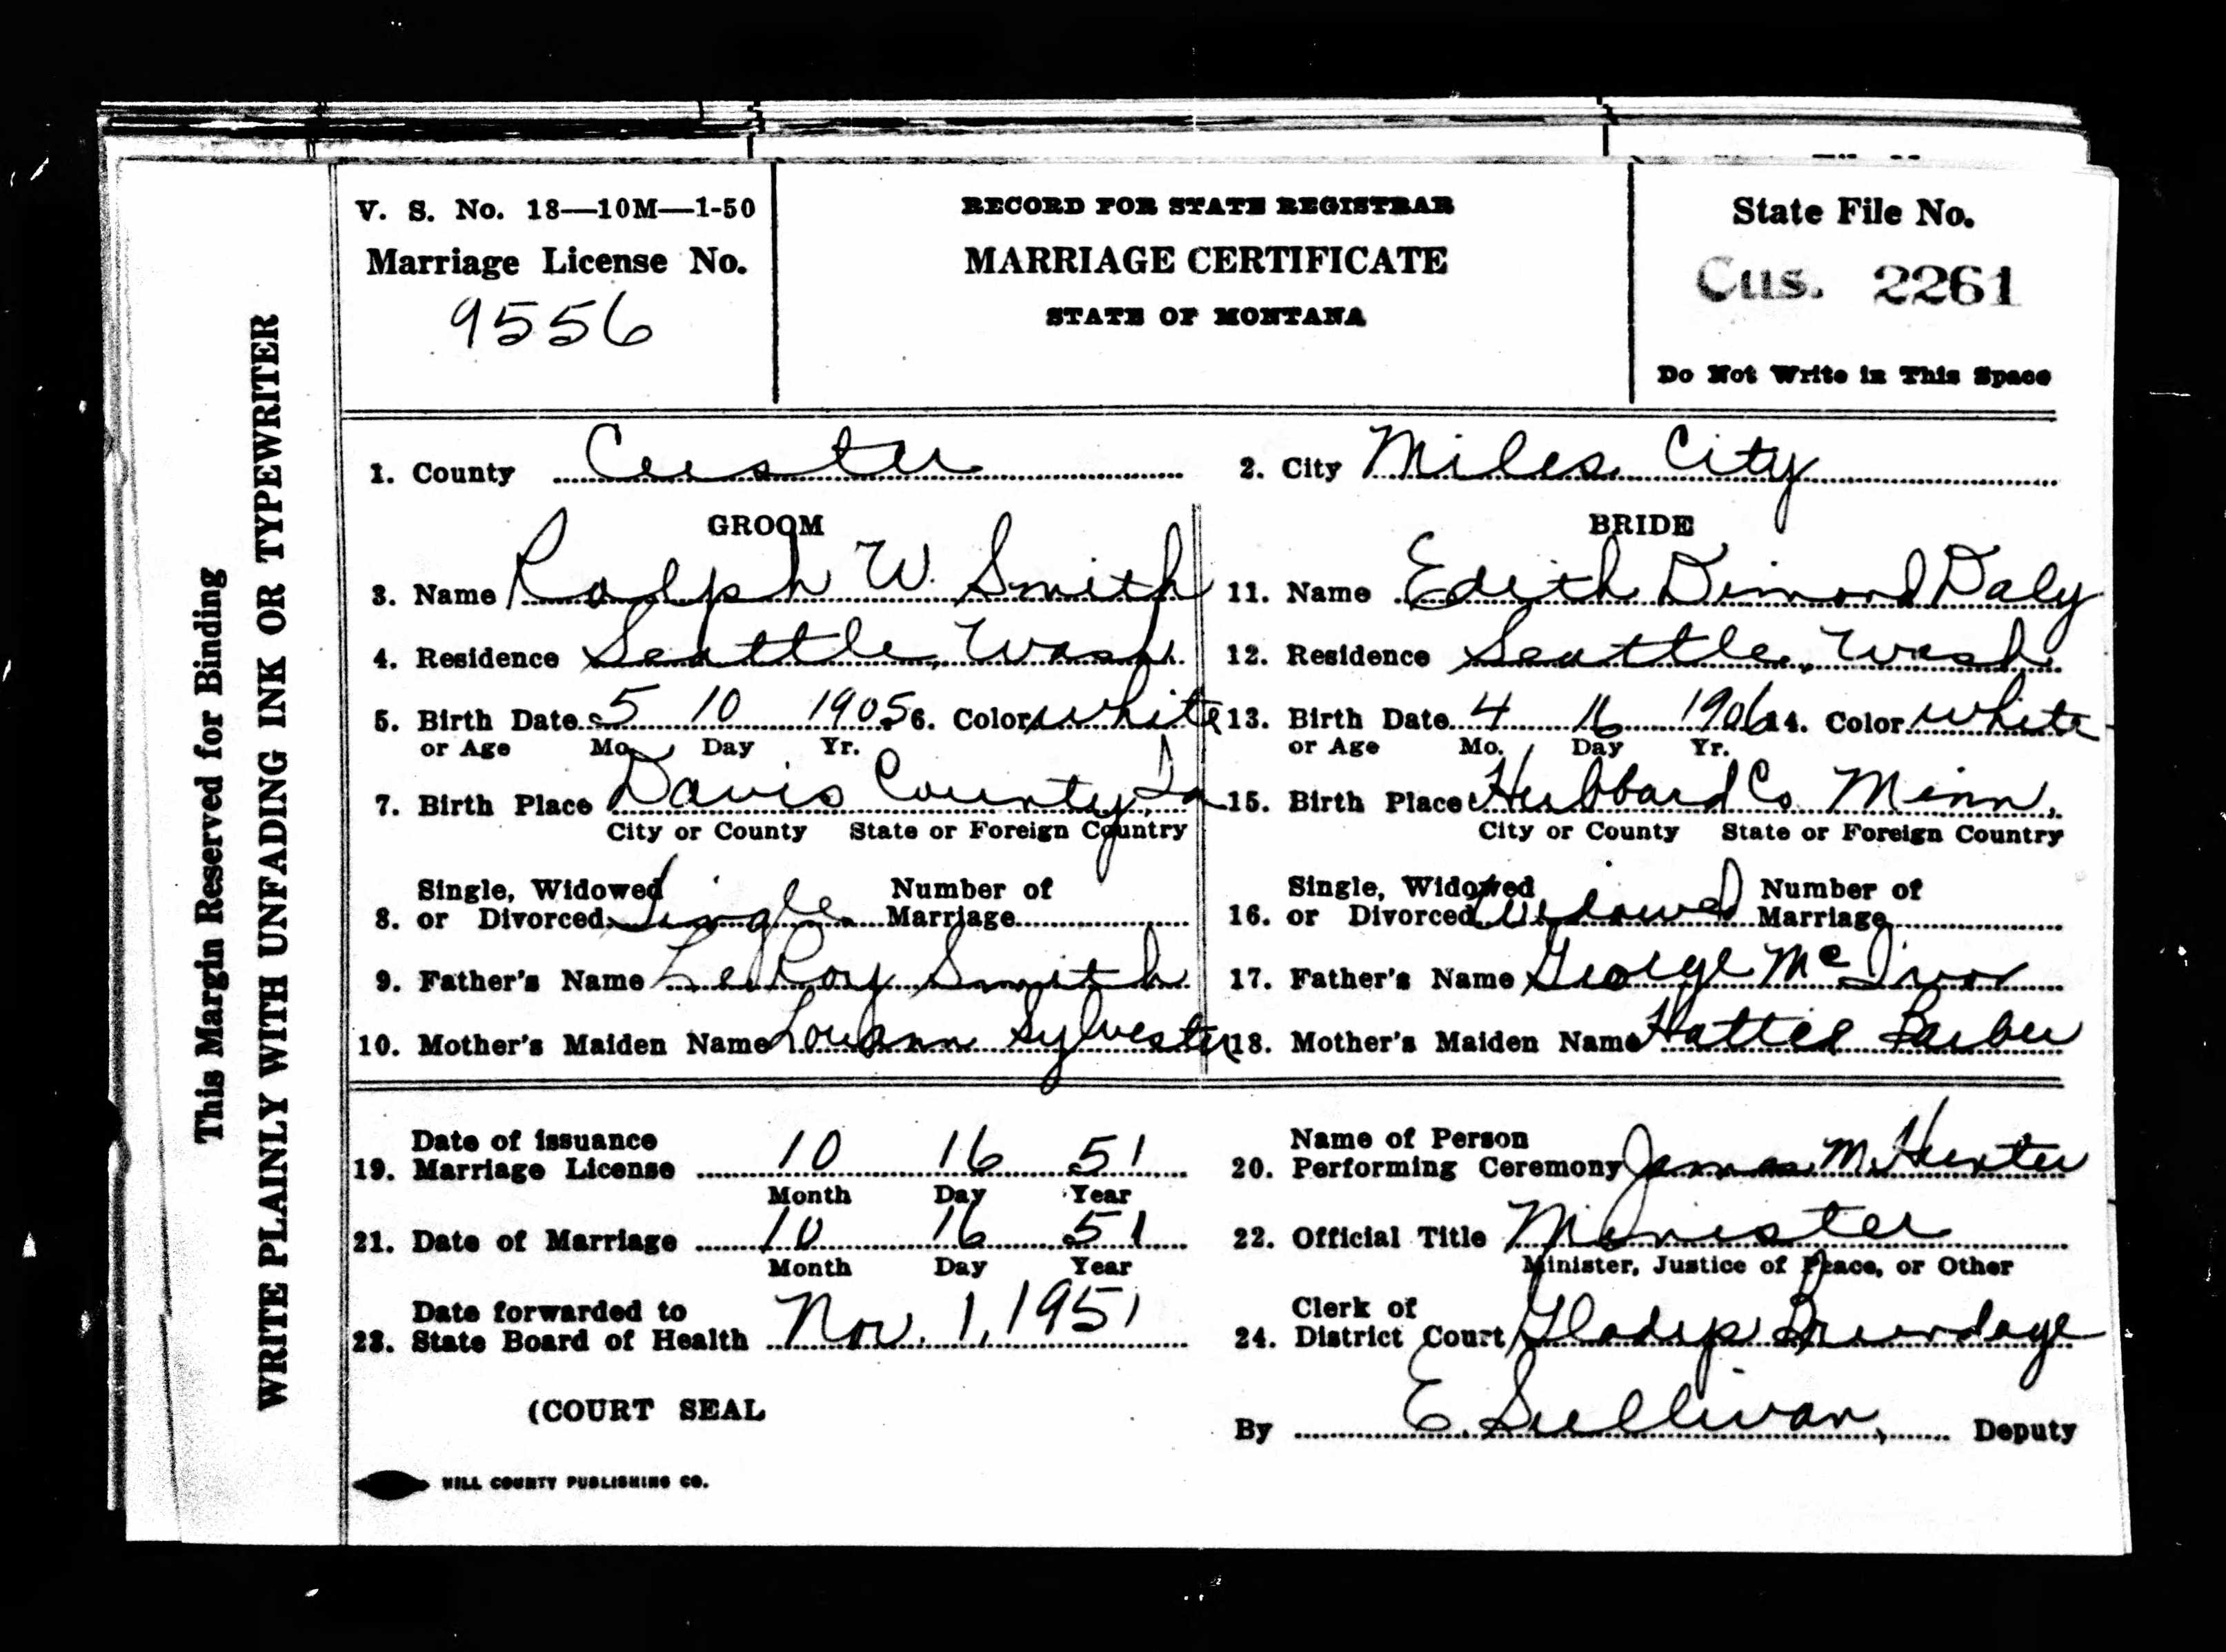 This Margin Reserved for Binding
WRITE PLAINLY WITH UNFADING INK OR TYPEWRITER
V. S. No. 18—10M—1-50
Marriage License No.
9556
RECORD FOR STATE REGISTRAR
MARRIAGE CERTIFICATE
STATE OF MONTANA
State File No.
Cus. 2261
Do Not Write in This Space
1. County Custer
2. City Miles City
GROOM
3. Name Ralph W. Smith
4. Residence Seattle, Wash.
5. Birth Date 5 10 1905 6. Color white
or Age Mo. Day Yr.
7. Birth Place Davis County, Ia
City or County State or Foreign Country
Single, Widowed Number of
8. or Divorced Single Marriage
9. Father's Name LeRoy Smith
10. Mother's Maiden Name Louann Sylvester
BRIDE
11. Name Edith Dimond Daly
12. Residence Seattle, Wash.
13. Birth Date 4 16 1906 14. Color white
or Age Mo. Day Yr.
15. Birth Place Hubbard Co Minn.
City or County State or Foreign Country
Single, Widowed Number of
16. or Divorced Widowed Marriage
17. Father's Name George McIvor
18. Mother's Maiden Name Hattie Barber
Date of issuance
19. Marriage License 10 16 51
Month Day Year
Name of Person
20. Performing Ceremony James M. Hunter
21. Date of Marriage 10 16 51
Month Day Year
22. Official Title Minister
Minister, Justice of Peace, or Other
Date forwarded to
23. State Board of Health Nov. 1, 1951
Clerk of
24. District Court Gladys Brundage
(COURT SEAL
By E. Sullivan, Deputy
HILL COUNTY PUBLISHING CO.